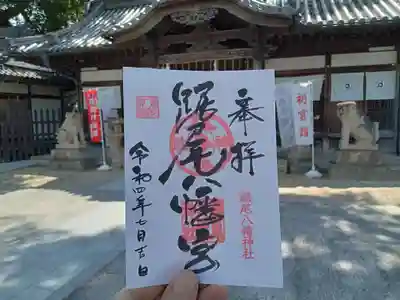 奉拝
踞尾八幡宮
令和四年七月吉日
踞尾八幡神社